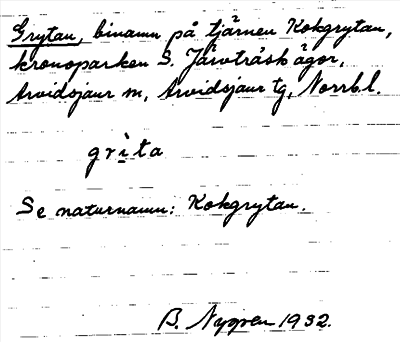 Grytan, binamn på tjärnen Kokgrytan,
kronoparken S. Järvträsk ägor,
Arvidsjaur sn, Arvidsjaur tg, Norrb. l.
grìta
Se naturnamn: Kokgrytan.
B. Nygren 1932.